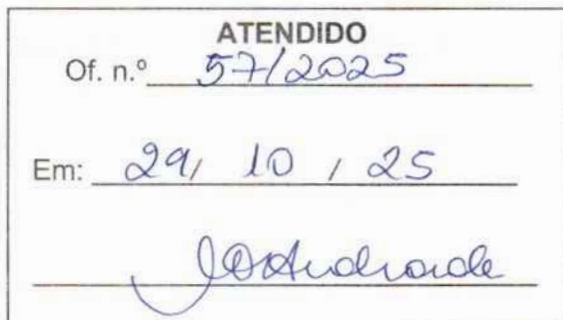 ATENDIDO
Of. n.º 57/2025
Em: 29/ 10 / 25